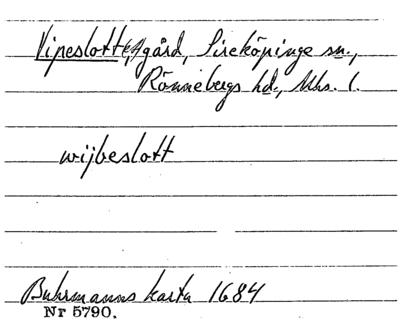 Vipeslott(et), gård, Sireköpinge sn.,
Rönnebergs hd., Mhs. l.
wijbeslott
Buhrmanns karta 1684
Nr 5790.